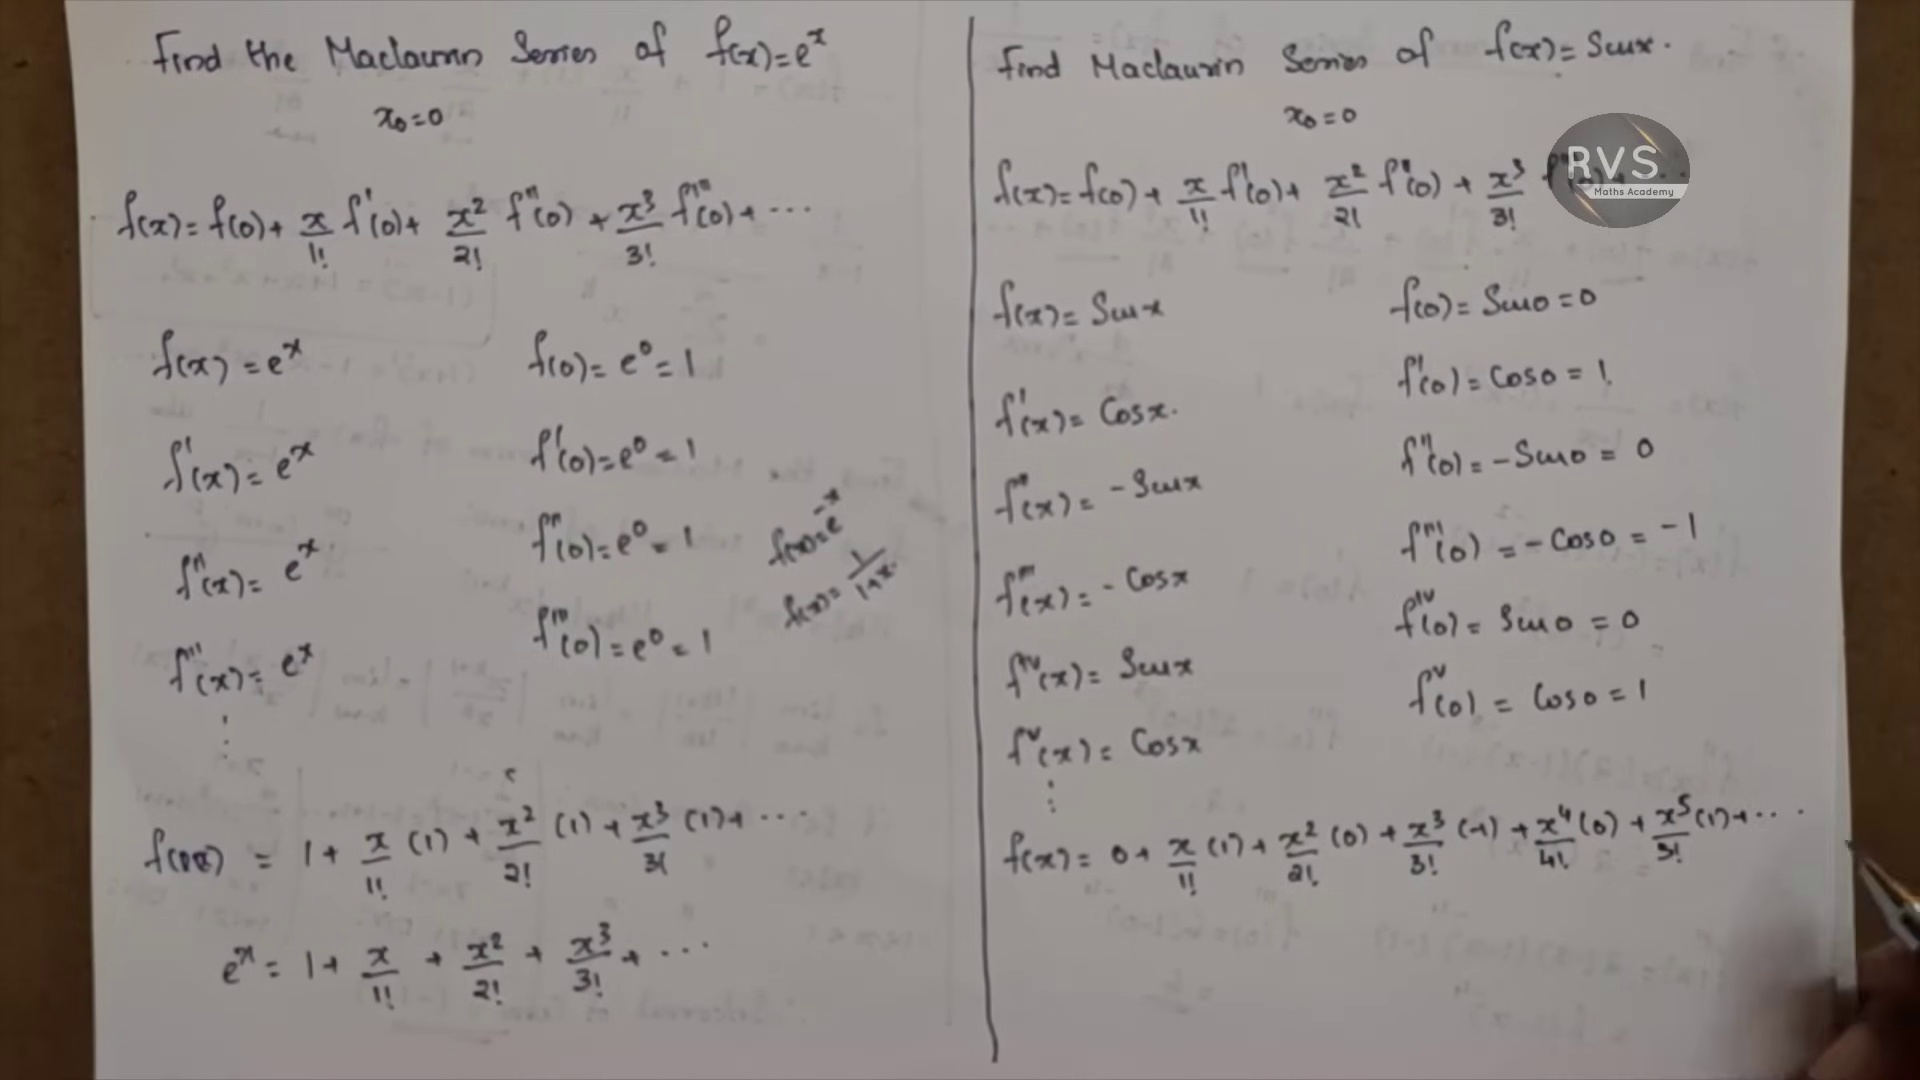 Find the Maclaurin Series of f(x)=e^x
x₀=0
f(x)=f(0)+ x/1! f'(0)+ x²/2! f''(0) + x³/3! f'''(0)+ ...
f(x) = e^x f(0)= e⁰ = 1
f'(x)= e^x f'(0)=e⁰ = 1
f''(x)= e^x f''(0)=e⁰ = 1
f'''(x)= e^x f'''(0)=e⁰ = 1
⋮
f(x)=e^-x
f(x)= 1/1+x.
f(x) = 1+ x/1! (1) + x²/2! (1) + x³/3! (1)+ ...
e^x = 1+ x/1! + x²/2! + x³/3! + ...
Find Maclaurin Series of f(x)= Sinx.
x₀=0
RVS
Maths Academy
f(x)= f(0)+ x/1! f'(0)+ x²/2! f''(0) + x³/3!
f(x)= Sinx f(0)= Sin0 = 0
f'(x)= Cosx. f'(0)= Cos0 = 1.
f''(x)= -Sinx f''(0)= -Sin0 = 0
f'''(x)= - Cosx f'''(0) = - Cos0 = -1
f^iv(x)= Sinx f^iv(0)= Sin0 = 0
f^v(x)= Cosx f^v(0) = Cos0 = 1
⋮
f(x)= 0+ x/1! (1)+ x²/2! (0) + x³/3! (-1) + x⁴/4! (0) + x⁵/5! (1)+ ...